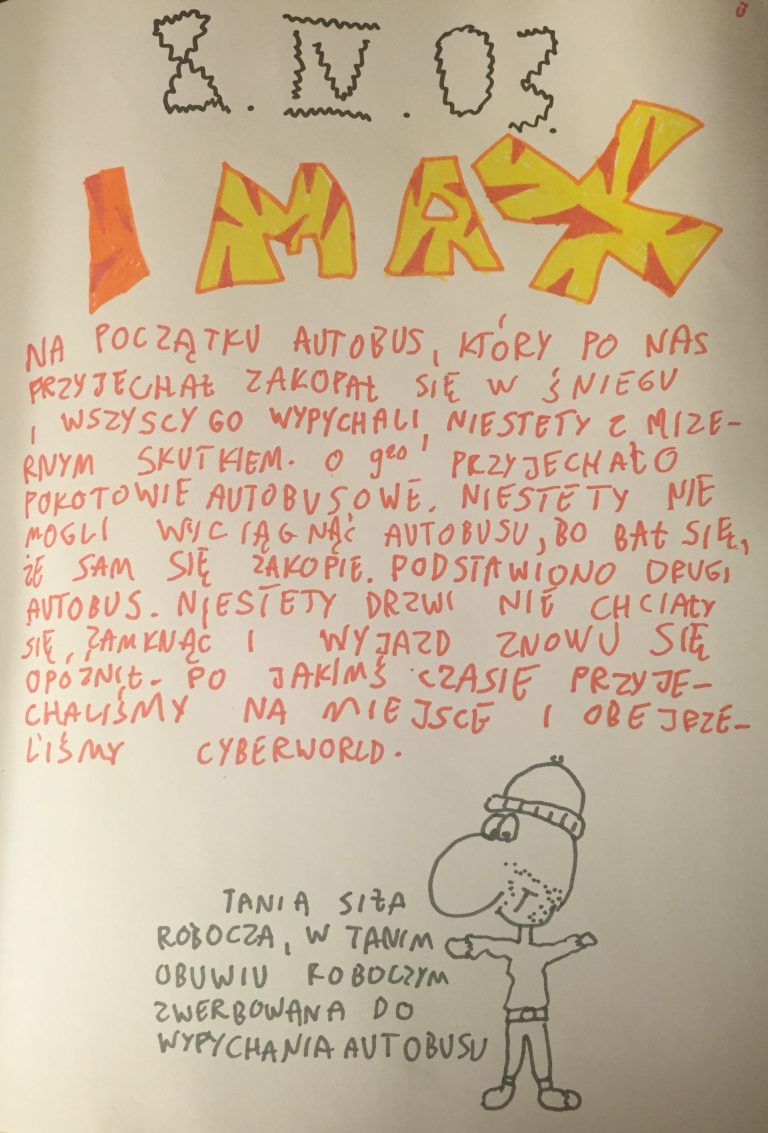 8. IV. 03.
IMAX
NA POCZĄTKU AUTOBUS, KTÓRY PO NAS
PRZYJECHAŁ ZAKOPAŁ SIĘ W ŚNIEGU
I WSZYSCY GO WYPYCHALI, NIESTETY Z MIZE-
RNYM SKUTKIEM. O 9²⁰ PRZYJECHAŁO
POKOTOWIE AUTOBUSOWE. NIESTETY NIE
MOGLI WYCIĄGNĄĆ AUTOBUSU, BO BAŁ SIĘ,
ŻE SAM SIĘ ZAKOPIE. PODSTAWIONO DRUGI
AUTOBUS. NIESTETY DRZWI NIE CHCIAŁY
SIĘ ZAMKNĄĆ I WYJAZD ZNOWU SIĘ
OPÓŹNIŁ. PO JAKIMŚ CZASIE PRZYJE-
CHALIŚMY NA MIEJSCE I OBEJRZE-
LIŚMY CYBERWORLD.
TANIA SIŁA
ROBOCZA, W TANIM
OBUWIU ROBOCZYM
ZWERBOWANA DO
WYPYCHANIA AUTOBUSU